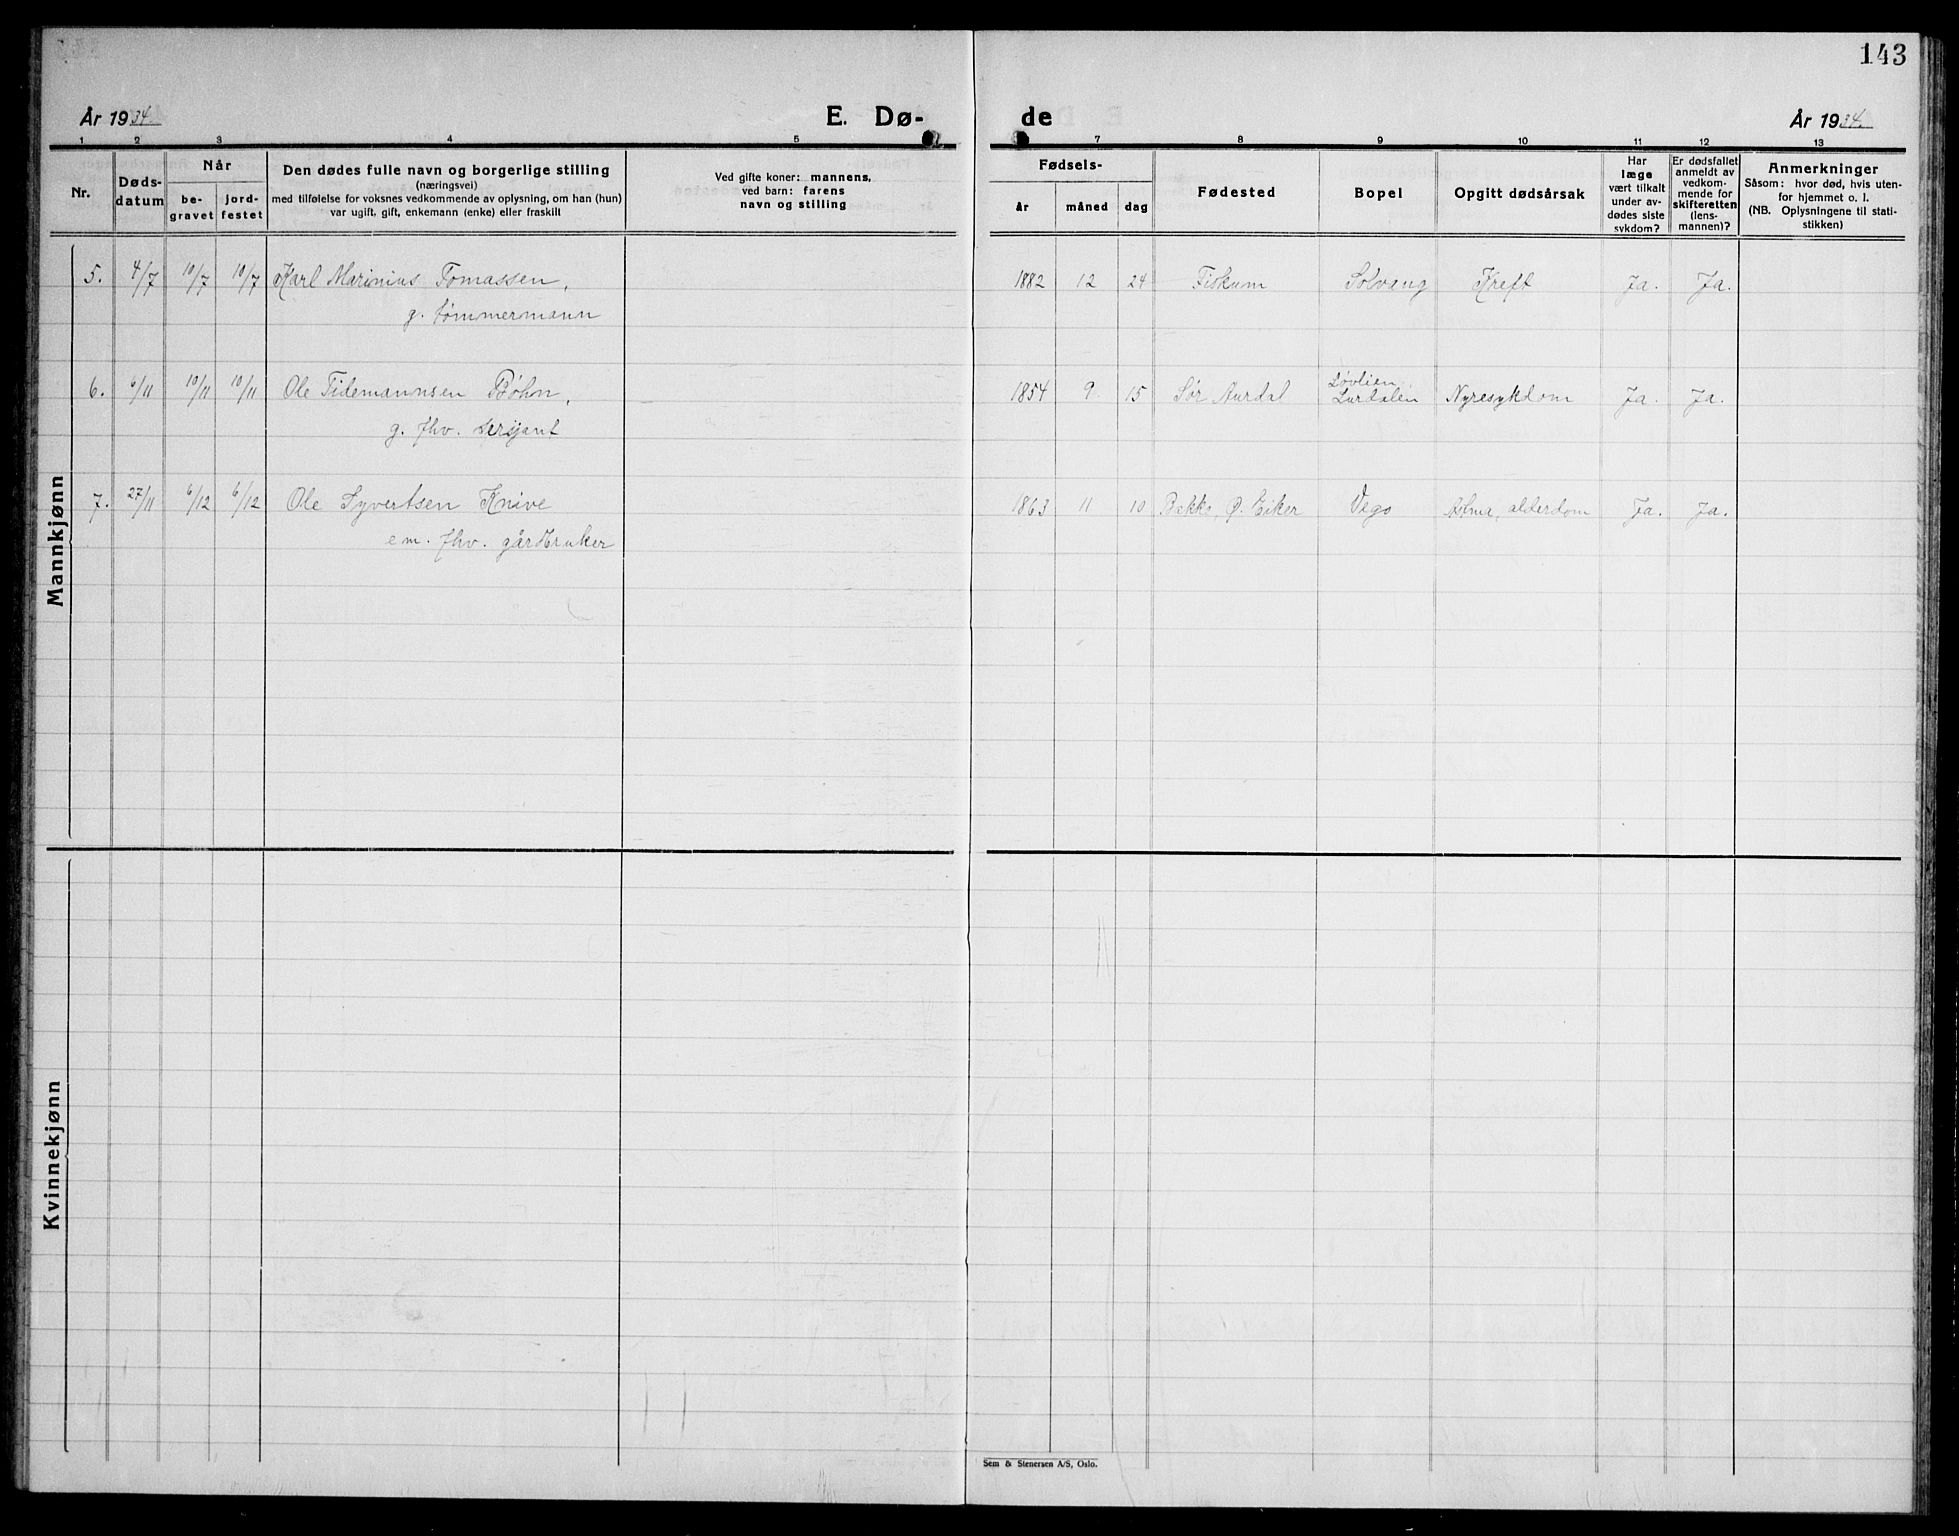 143
År 1934.
E. Dø-
de
År 1934.
1 2 3 4 5 6 7 8 9 10 11 12 13
Nr.
Døds-
datum
Når
be-
gravet
jord-
festet
Den dødes fulle navn og borgerlige stilling
(næringsvei)
med tilføielse for voksnes vedkommende av oplysning, om han (hun)
var ugift, gift, enkemann (enke) eller fraskilt
Ved gifte koner: mannens,
ved barn: farens
navn og stilling
Fødsels-
år
måned
dag
Fødested
Bopel
Opgitt dødsårsak
Har
læge
vært tilkalt
under av-
dødes siste
sykdom?
Er dødsfallet
anmeldt av
vedkom-
mende for
skifteretten
(lens-
mannen)?
Anmerkninger
Såsom: hvor død, hvis uten-
for hjemmet o. l.
(NB. Oplysningene til stati-
stikken)
Mannkjønn
5. 4/7 10/7 10/7 Karl Marinius Tomassen, 1882 12 24 Fiskum Solvang Kreft Ja. Ja.
g. tømmermann
6. 6/11 10/11 10/11 Ole Tidemannsen Bøhn, 1854 9 15 Sør Aurdal Løvlien Nyresykdom Ja. Ja.
Lurdalen
g. fhv. sersjant
7. 27/11 6/12 6/12 Ole Syvertsen Knive 1863 11 10 Bakke, Ø. Eiker Vego Astma, alderdom Ja. Ja.
em. fhv. gårdbruker
Kvinnekjønn
Sem & Stenersen A/S, Oslo.